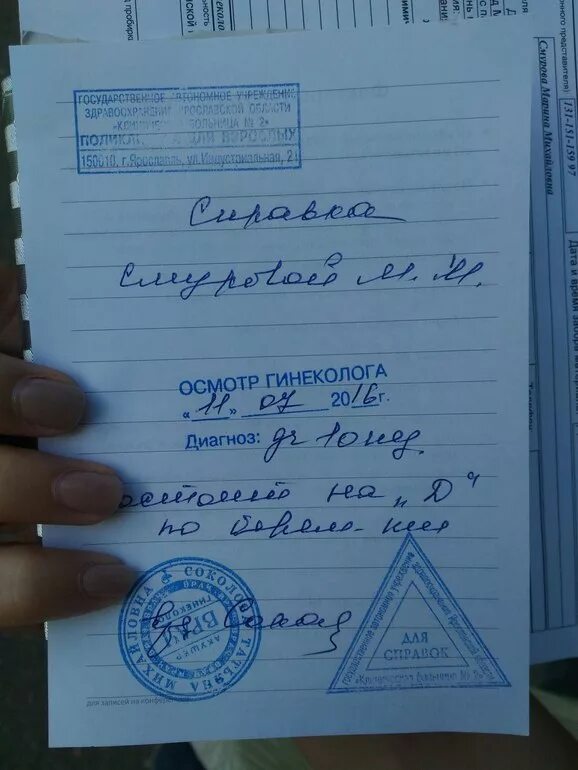 ГОСУДАРСТВЕННОЕ АВТОНОМНОЕ УЧРЕЖДЕНИЕ
ЗДРАВООХРАНЕНИЯ ЯРОСЛАВСКОЙ ОБЛАСТИ
«КЛИНИЧЕСКАЯ БОЛЬНИЦА № 2»
ПОЛИКЛИНИКА ДЛЯ ВЗРОСЛЫХ
150010, г. Ярославль, ул. Индустриальная, 21
Справка
Смуровой М.М.
ОСМОТР ГИНЕКОЛОГА
«11» 07 2016г.
Диагноз: 10 нед.
состоит на „Д"
по берем-ти
СОКОЛОВА ТАТЬЯНА МИХАЙЛОВНА
ВРАЧ
АКУШЕР
ГИНЕКОЛОГ
ДЛЯ
СПРАВОК
Государственное автономное учреждение
здравоохранения Ярославской области
«Клиническая больница № 2»
для записей на конференции
Смурова Марина Михайловна
131-151-159 97
Дата и время